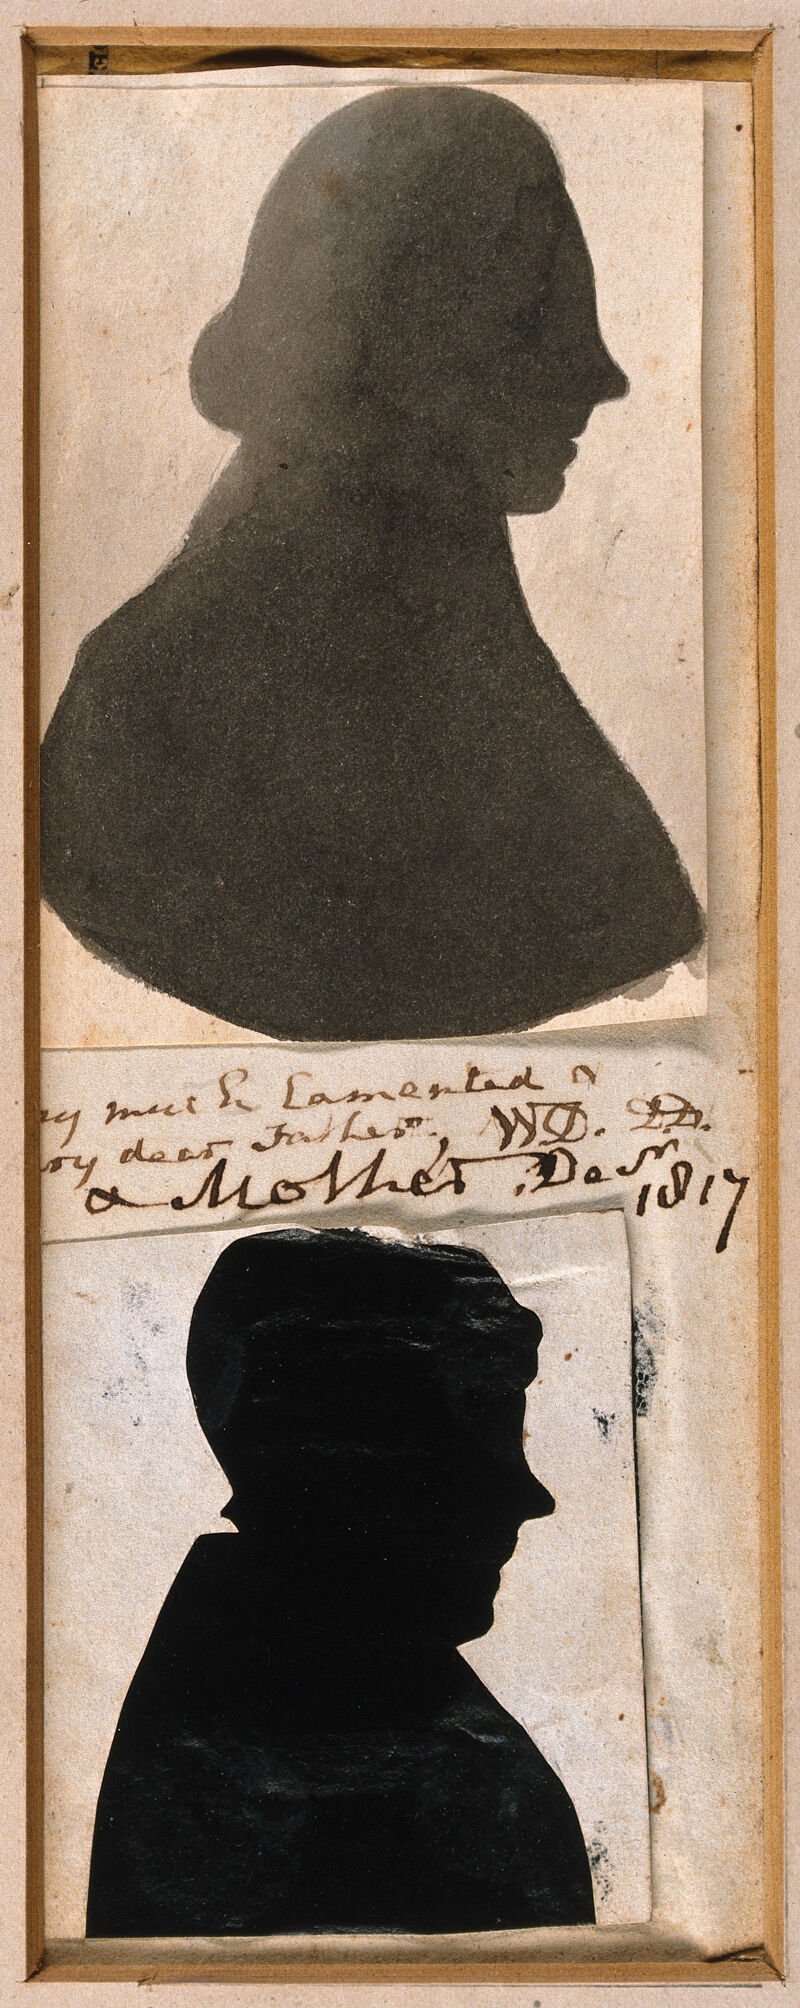 ry much Lamented &
ry dear Father, WD. DD.
& Mother. Decr.
1817